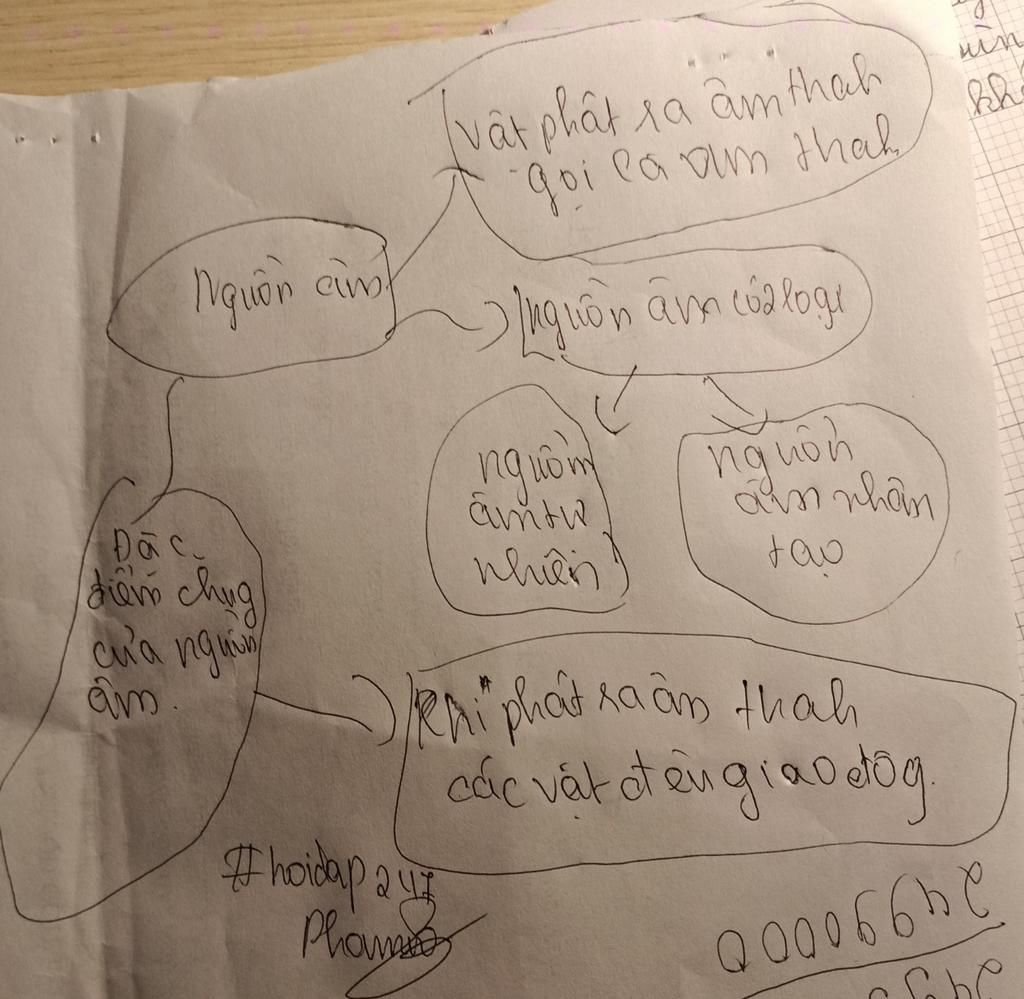 vật phát ra âm thah
gọi là âm thah
Nguồn âm
Nguồn âm có 2 loại
nguồn
âm tự
nhiên
nguồn
âm nhân
tạo
Đặc
điểm chug
của nguồn
âm.
Khi phát ra âm thah
các vật đều giao độg.
#hoidap247
2499000